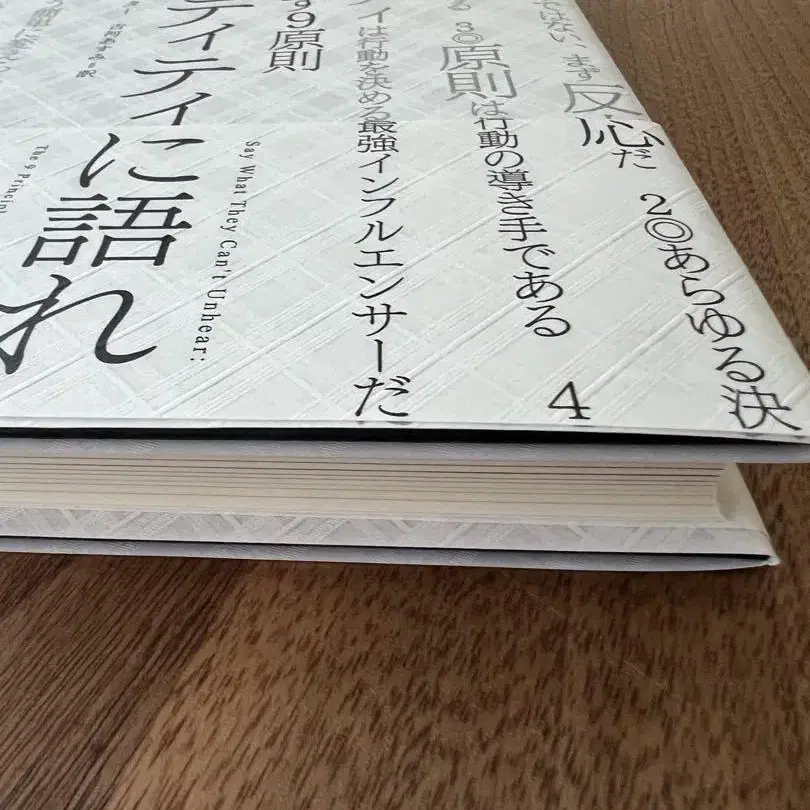 ではない、まず反応だ
2◎あらゆる決
3◎原則は行動の導き手である
4
ィは行動を決める最強インフルエンサーだ
9原則
Say What They Can't Unhear:
The 9 Principl
ティティに語れ
訳